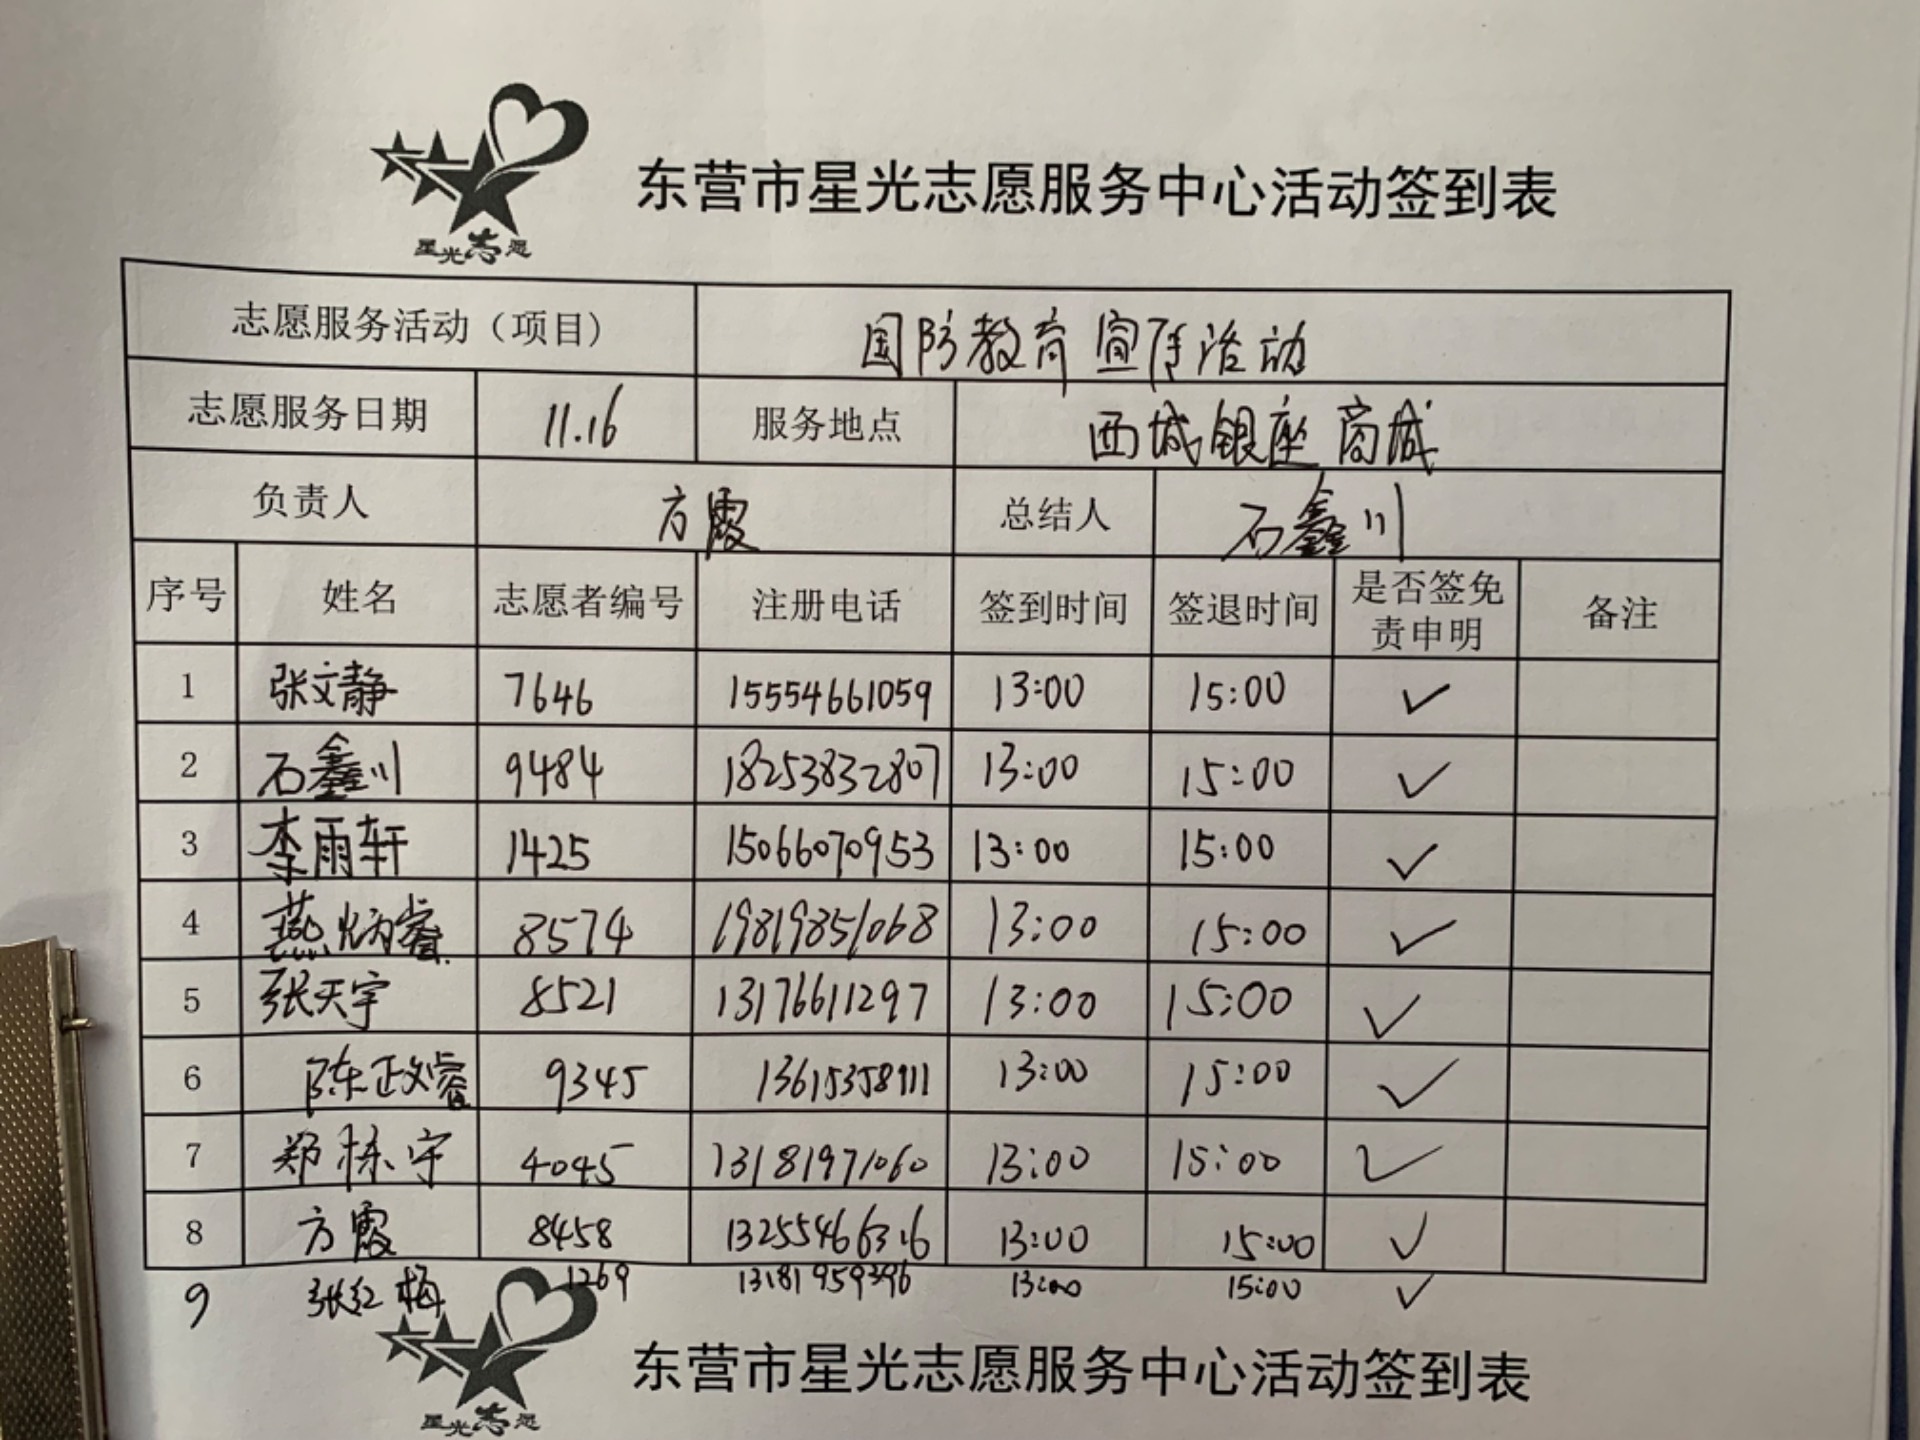 星光志愿
东营市星光志愿服务中心活动签到表
志愿服务活动（项目） 国防教育宣传活动
志愿服务日期 11.16 服务地点 西城银座商城
负责人 方霞 总结人 石鑫川
序号 姓名 志愿者编号 注册电话 签到时间 签退时间 是否签免责申明 备注
1 张文静 7646 15554661059 13:00 15:00 ✓
2 石鑫川 9484 18253832807 13:00 15:00 ✓
3 李雨轩 1425 15066070953 13:00 15:00 ✓
4 燕炳睿 8574 19819851068 13:00 15:00 ✓
5 张天宇 8521 13176611297 13:00 15:00 ✓
6 陈政睿 9345 13615358911 13:00 15:00 ✓
7 郑栋宇 4045 13181971060 13:00 15:00 ✓
8 方霞 8458 13255466316 13:00 15:00 ✓
9 张红梅 1269 13181959396 13:00 15:00 ✓
东营市星光志愿服务中心活动签到表
星光志愿